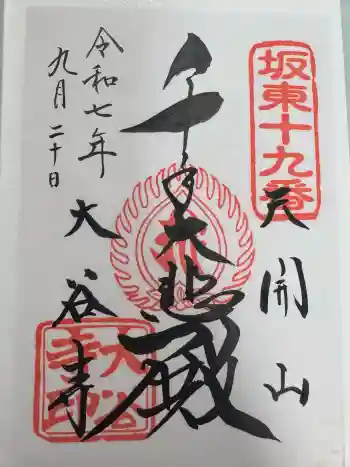 坂東十九番
天開山
千手大悲殿
大谷寺
大谷寺印
令和七年
九月二十日